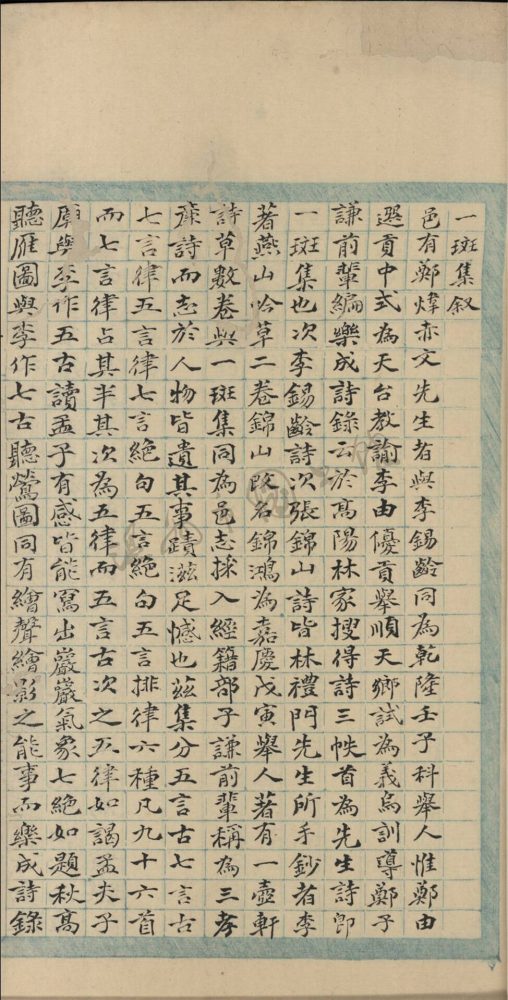 一斑集叙
邑有鄭煒赤文先生者與李錫齡同為乾隆壬子科舉人惟鄭由
選貢中式為天台教諭李由優貢舉順天鄉試為義烏訓導鄭子
謙前輩編樂成詩錄云於高陽林家搜得詩三帙首為先生詩即
一斑集也次李錫齡詩次張錦山詩皆林禮門先生所手鈔者李
著燕山吟草二卷錦山改名錦鴻為嘉慶戊寅舉人著有一壺軒
詩草數卷與一斑集同為邑志採入經籍部子謙前輩稱為三孝
廉詩而志於人物皆遺其事蹟滋足憾也茲集分五言古七言古
七言律五言律七言絕句五言絕句五言排律六種凡九十六首
而七言律占其半其次為五律而五言古次之五律如謁孟夫子
廟與至作五古讀孟子有感皆能寫出巖巖氣象七絕如題秋高
聽雁圖與李作七古聽鶯圖同有繪聲繪影之能事而樂成詩錄